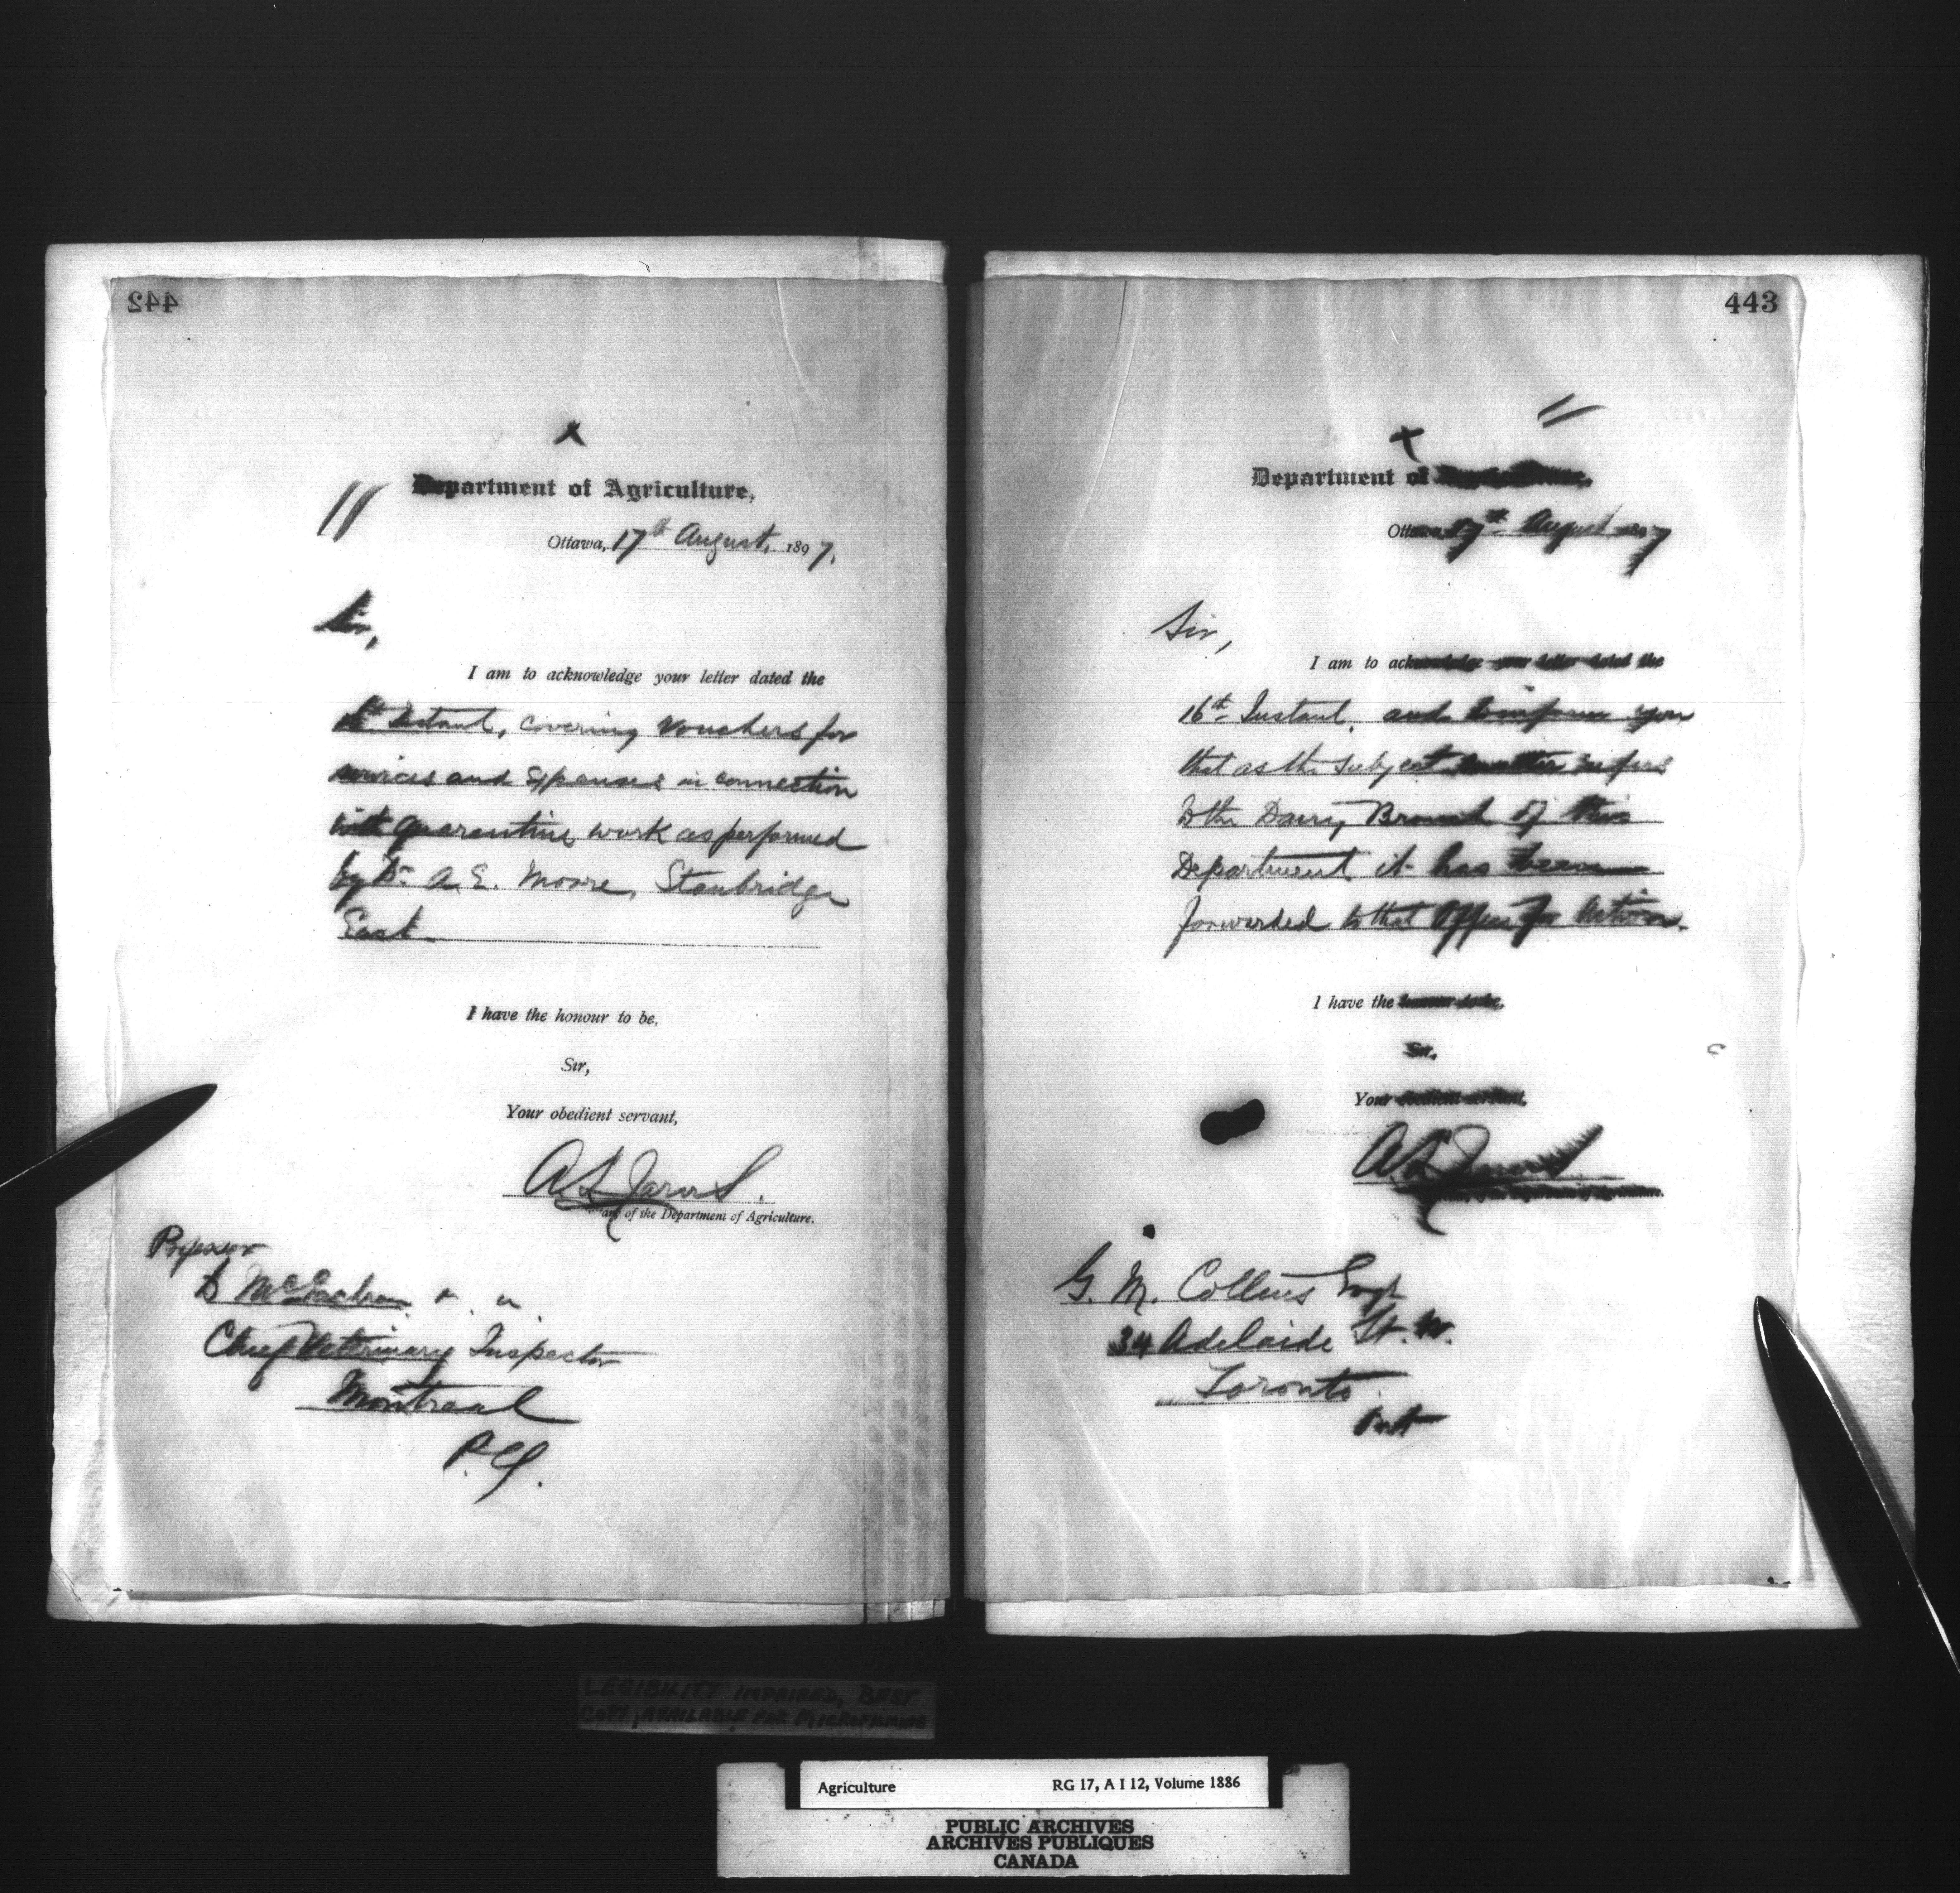 442
Department of Agriculture,
Ottawa, 17th August, 1897.
Sir,
I am to acknowledge your letter dated the
Instant, covering vouchers for
services and Expenses in connection
with quarantine work as performed
by Dr A. E. Moore, Stanbridge
East
I have the honour to be,
Sir,
Your obedient servant,
A L Jarvis.
of the Department of Agriculture.
Professor
D McEachran
Chief Veterinary Inspector
Montreal
P.Q.
443
Department of
Ottawa, 17th August 1897
Sir,
I am to acknowledge your letter dated the
16th Instant, and to inform you
that as the subject matter refers
to the Dairy Branch of this
Department it has been
forwarded to that Office for action.
I have the honour to be,
Sir,
Your obedient servant,
A L Jarvis
G. M. Collins Esqr
34 Adelaide St. W.
Toronto
Ont
LEGIBILITY IMPAIRED, BEST
COPY AVAILABLE FOR MICROFILMING
Agriculture RG 17, A I 12, Volume 1886
PUBLIC ARCHIVES
ARCHIVES PUBLIQUES
CANADA